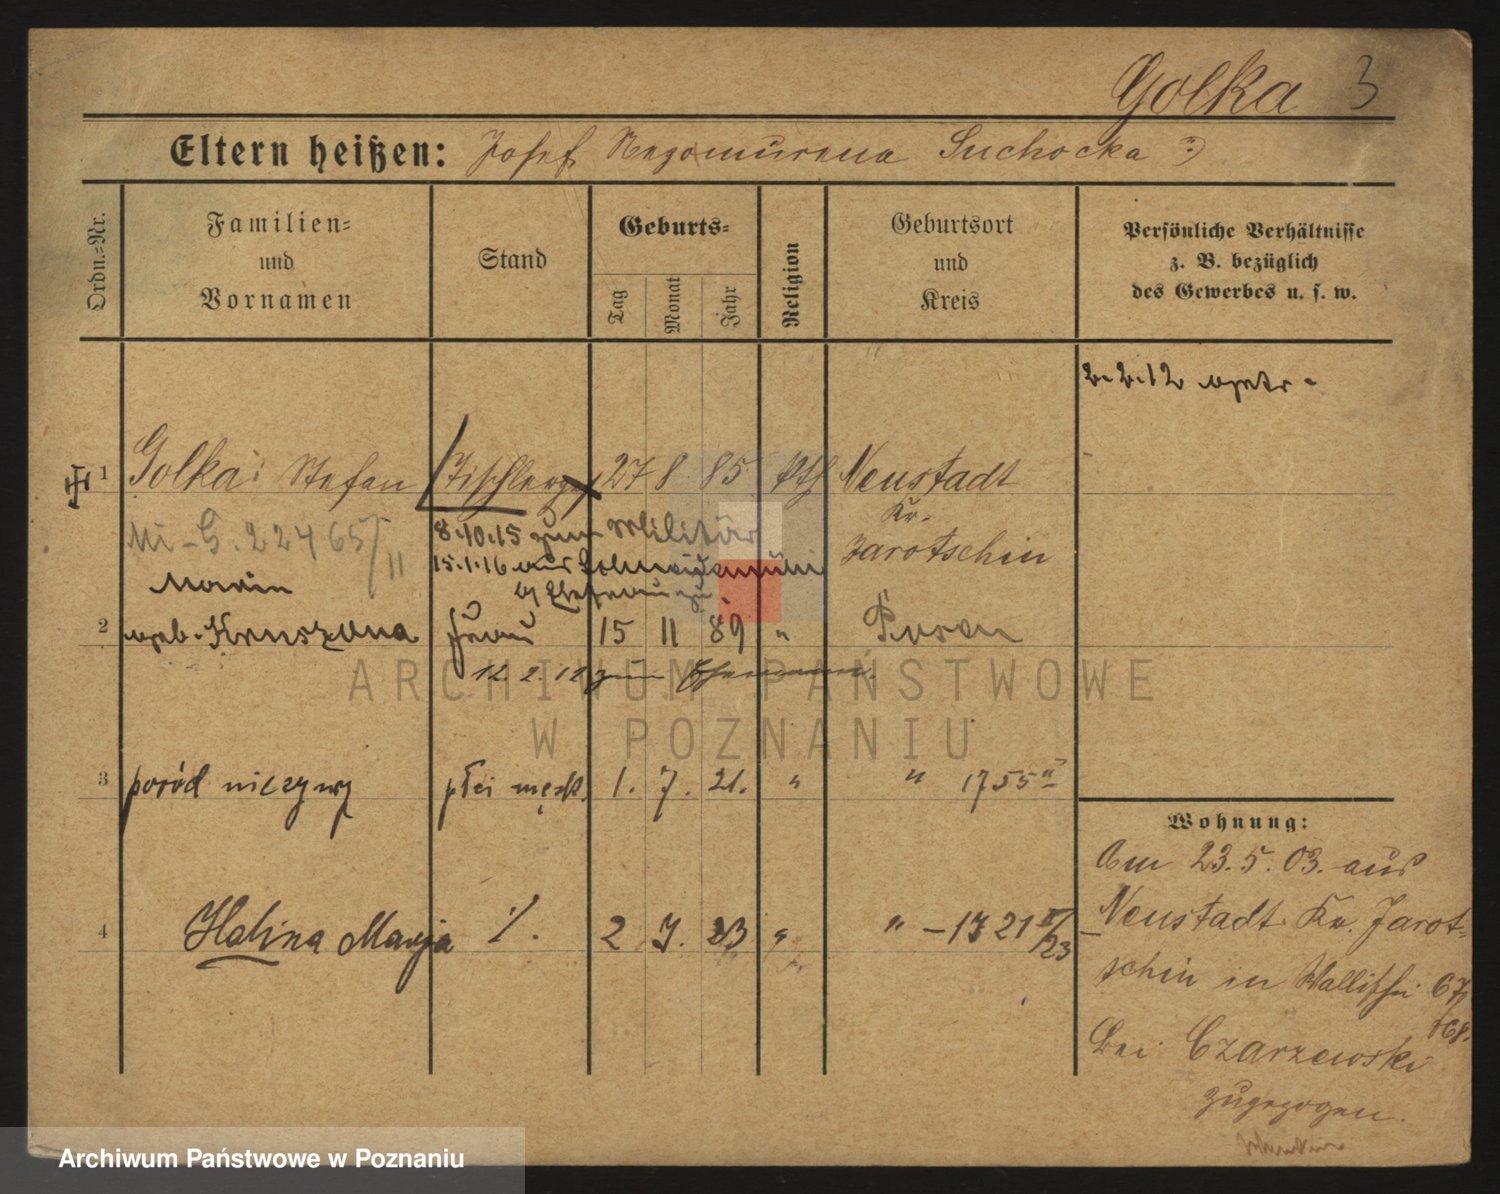 Golka 3
Eltern heißen: Josef Suchocka
Ordn.-Nr.
Familien-
und
Vornamen
Stand
Geburts-
Tag
Monat
Jahr
Religion
Geburtsort
und
Kreis
Persönliche Verhältnisse
z. B. bezüglich
des Gewerbes u. s. w.
2.2.12
1 Golka Stefan 27 8 85 kth Neustadt
Kr.
Jarotschin
8.10.15 zum Militär
15.1.16 aus Schneidemühl
2 geb. Kruszona Frau 15 11 89 " Posen
12.2.12 zum Ehemann.
3 poród nieżywy płci męsk. 1. 7. 21. " " 1755
4 Halina Marja ./. 2 7. 23 " " – 1721 II/23
Wohnung:
Am 23.5.03. aus
Neustadt Kr. Jarot-
schin in Wallischei 67/
68.
bei Czarzewski
zugezogen.
ARCHIWUM PAŃSTWOWE
W POZNANIU
Archiwum Państwowe w Poznaniu